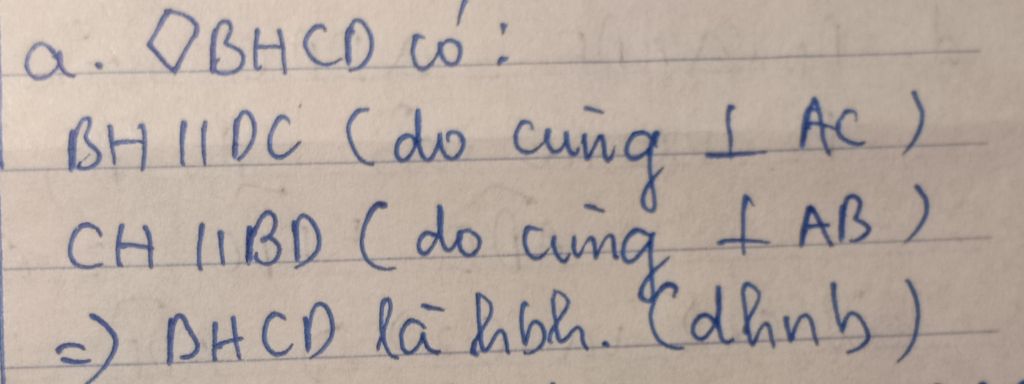 a. ◇BHCD có:
BH // DC (do cùng ⊥ AC)
CH // BD (do cùng ⊥ AB)
=> BHCD là hbh. (dhnb)